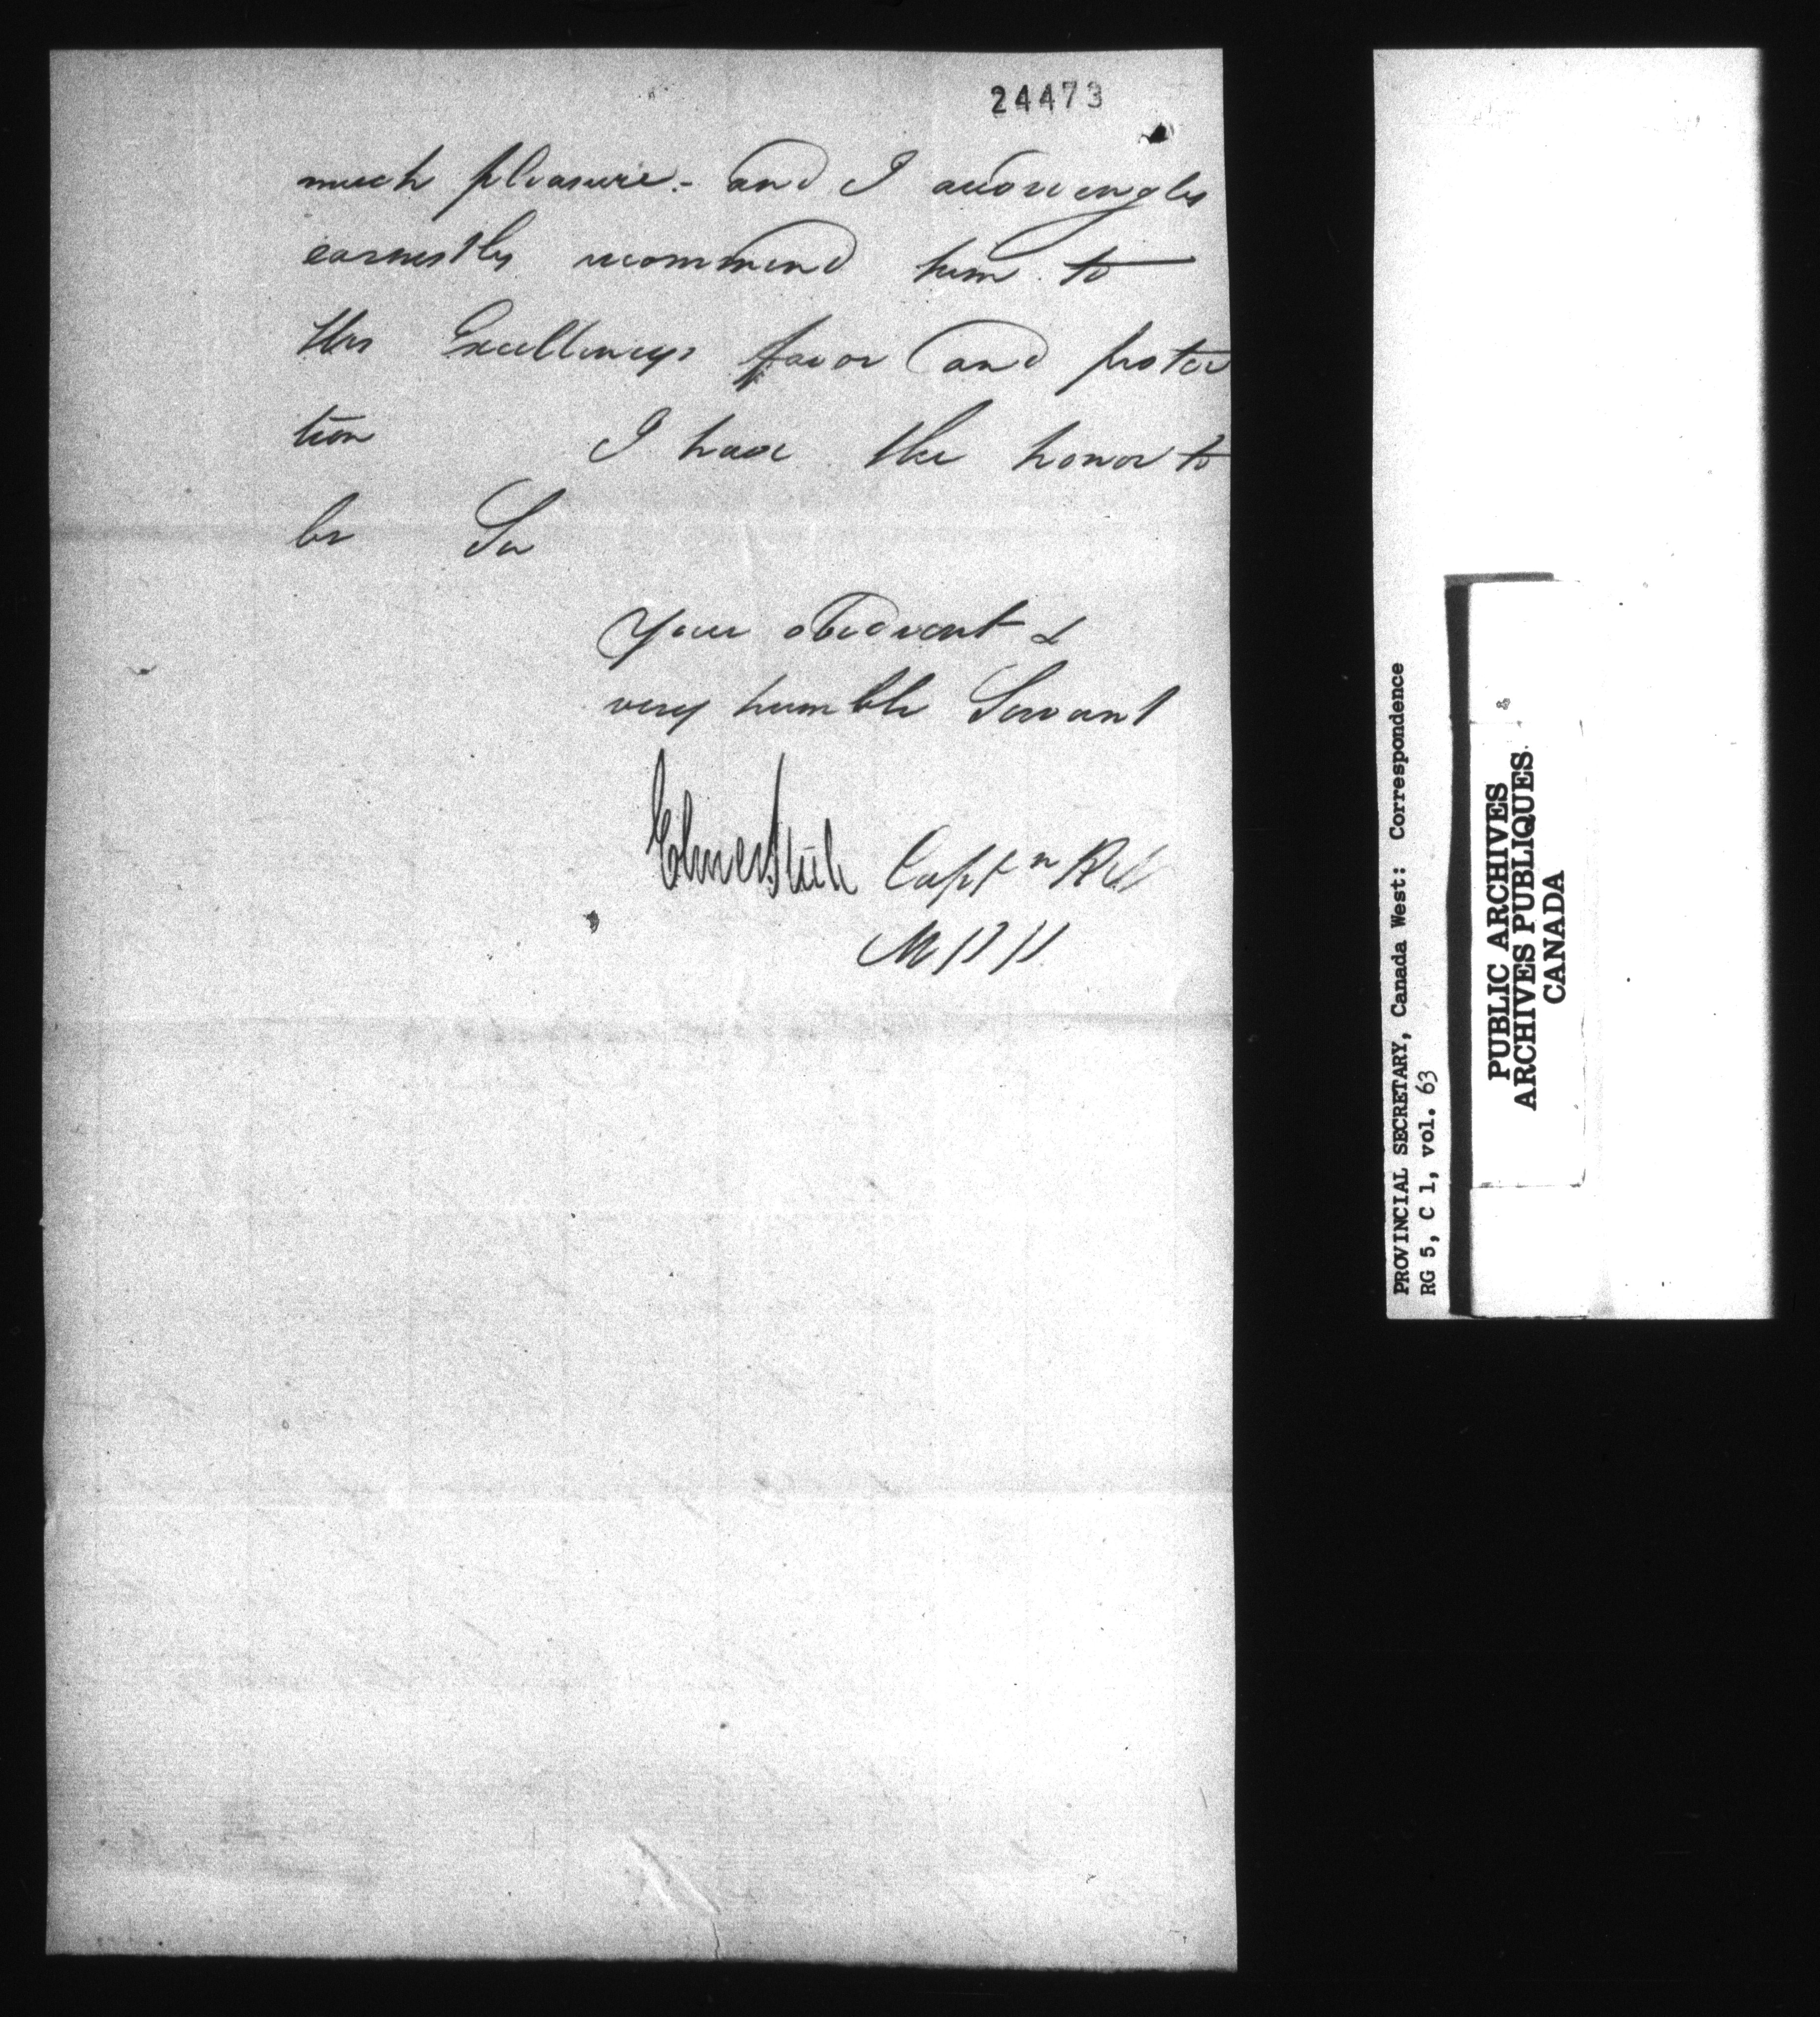 24473
much pleasure.- and I accordingly
earnestly recommend him to
His Excellencys favor and protec
tion I have the honor to
be Sir
Your obedient &
very humble Servant
Elmes Steele Capt n RN
MPP
PROVINCIAL SECRETARY, Canada West: Correspondence
RG 5, C 1, vol. 63
PUBLIC ARCHIVES
ARCHIVES PUBLIQUES
CANADA